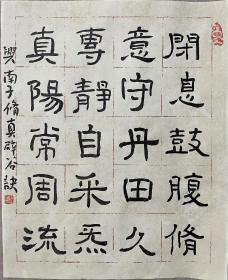 閉息鼓腹脩
意守丹田久
專靜自采炁
真陽常周流
與南子脩真辟谷訣